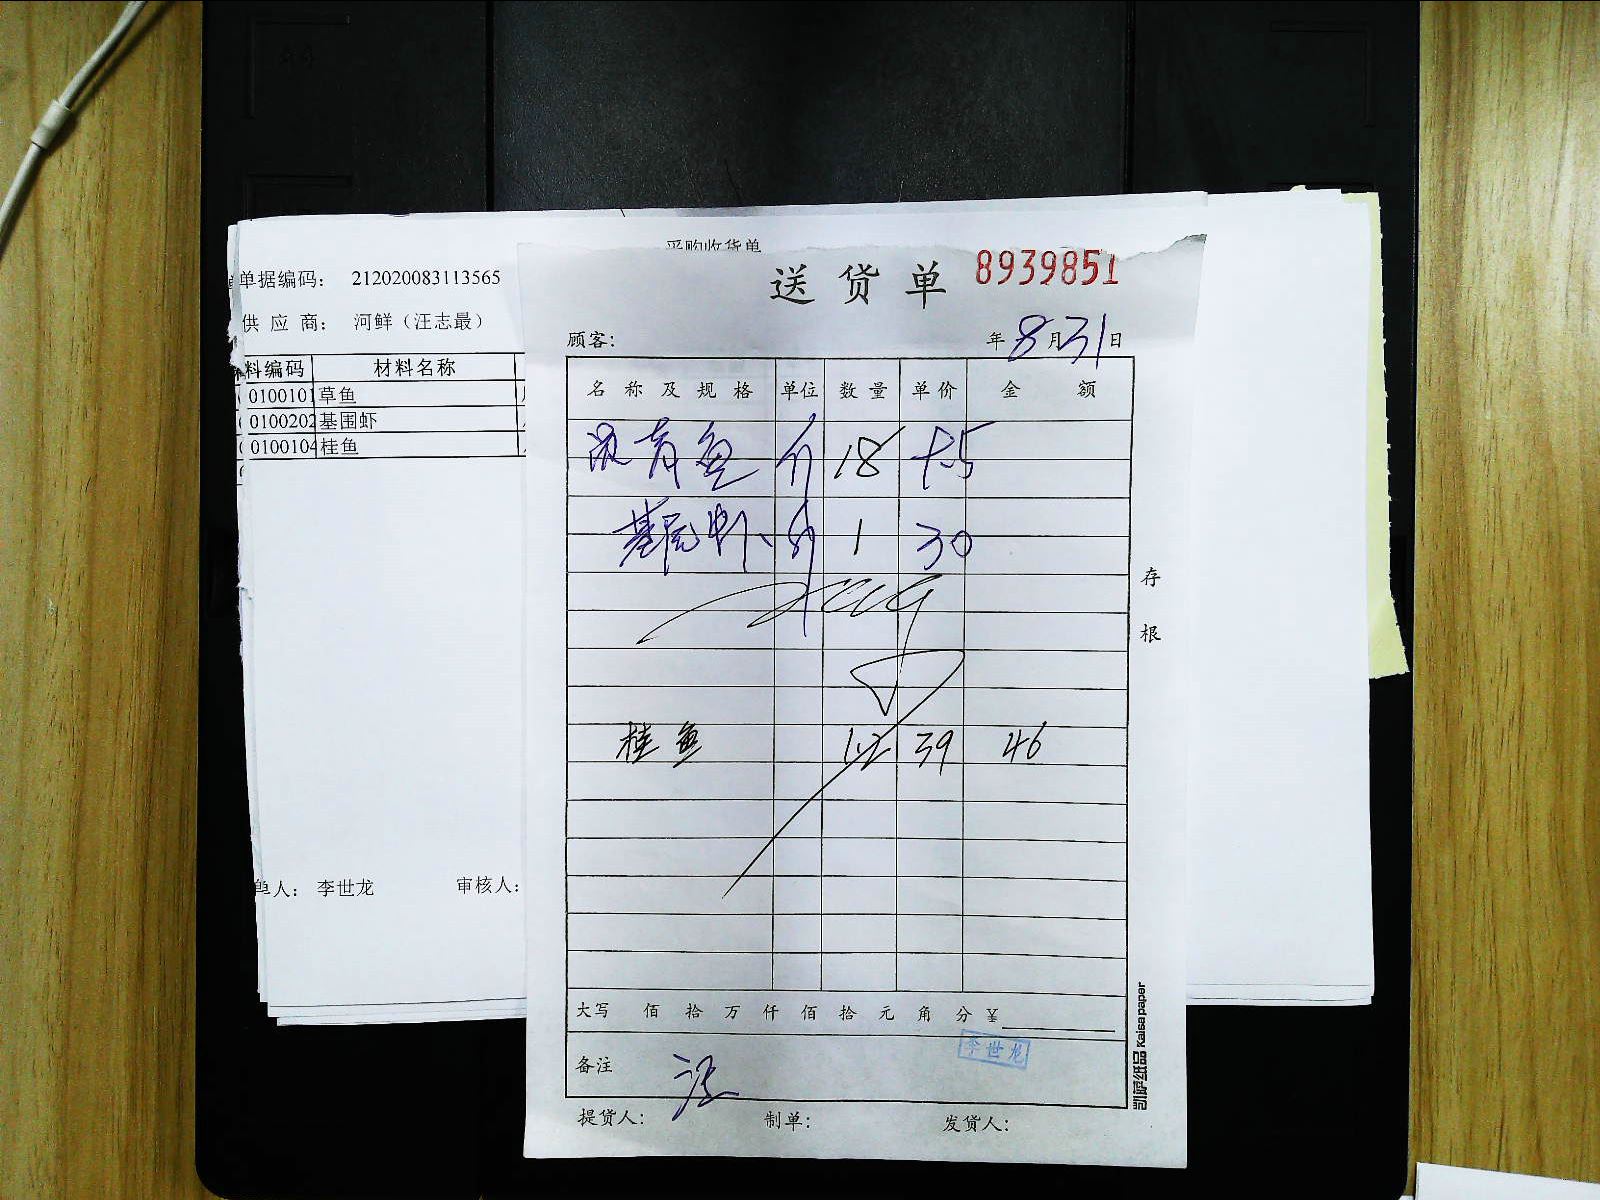 采购收货单
单据编码: 212020083113565
供 应 商: 河鲜（汪志最）
料编码 材料名称
0100101 草鱼
0100202 基围虾
0100104 桂鱼
单人: 李世龙 审核人:
送货单 8939851
顾客: 年 8 月 31 日
名称及规格 单位 数量 单价 金额
青鱼 斤 18
基围虾 斤 1 30
桂鱼 1.2 39 46
存根
大写 佰 拾 万 仟 佰 拾 元 角 分 ¥
李世龙
备注 汪
提货人: 制单: 发货人:
凯萨纸品 Kaisa paper